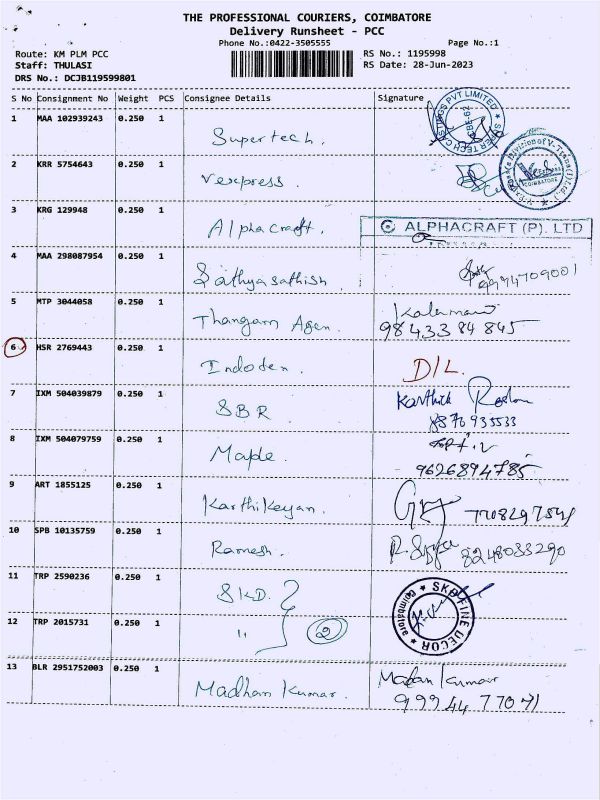 THE PROFESSIONAL COURIERS, COIMBATORE
Delivery Runsheet - PCC
Phone No.:0422-3505555
Page No.:1
Route: KM PLM PCC
RS No.: 1195998
Staff: THULASI
RS Date: 28-Jun-2023
DRS No.: DCJB119599801
S No Consignment No Weight PCS Consignee Details Signature
1 MAA 102939243 0.250 1 Supertech.
2 KRR 5754643 0.250 1 Vexpress.
COIMBATORE
3 KRG 129948 0.250 1 Alphacraft.
ALPHACRAFT (P). LTD
4 MAA 298087954 0.250 1 Sathyasathish
9994709001
5 MTP 3044058 0.250 1 Thangam Agen.
98433 84845
6 HSR 2769443 0.250 1 Indoten. D/L.
7 IXM 504039879 0.250 1 SBR Karthick
8870935533
8 IXM 504079759 0.250 1 Maple.
9626894785
9 ART 1855125 0.250 1 Karthikeyan.
10 SPB 10135759 0.250 1 Ramesh. 8248033290
11 TRP 2590236 0.250 1 SKD.
SKD FINE DECOR
Coimbatore
12 TRP 2015731 0.250 1 " 2
13 BLR 2951752003 0.250 1 Madhan Kumar.
Madan Kumar
99944 77071